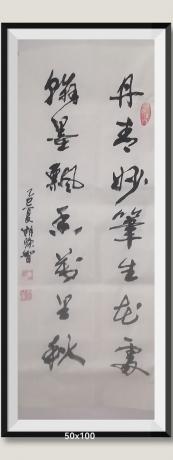 丹青妙筆生花處
翰墨飄香萬里秋
乙巳夏
50x100